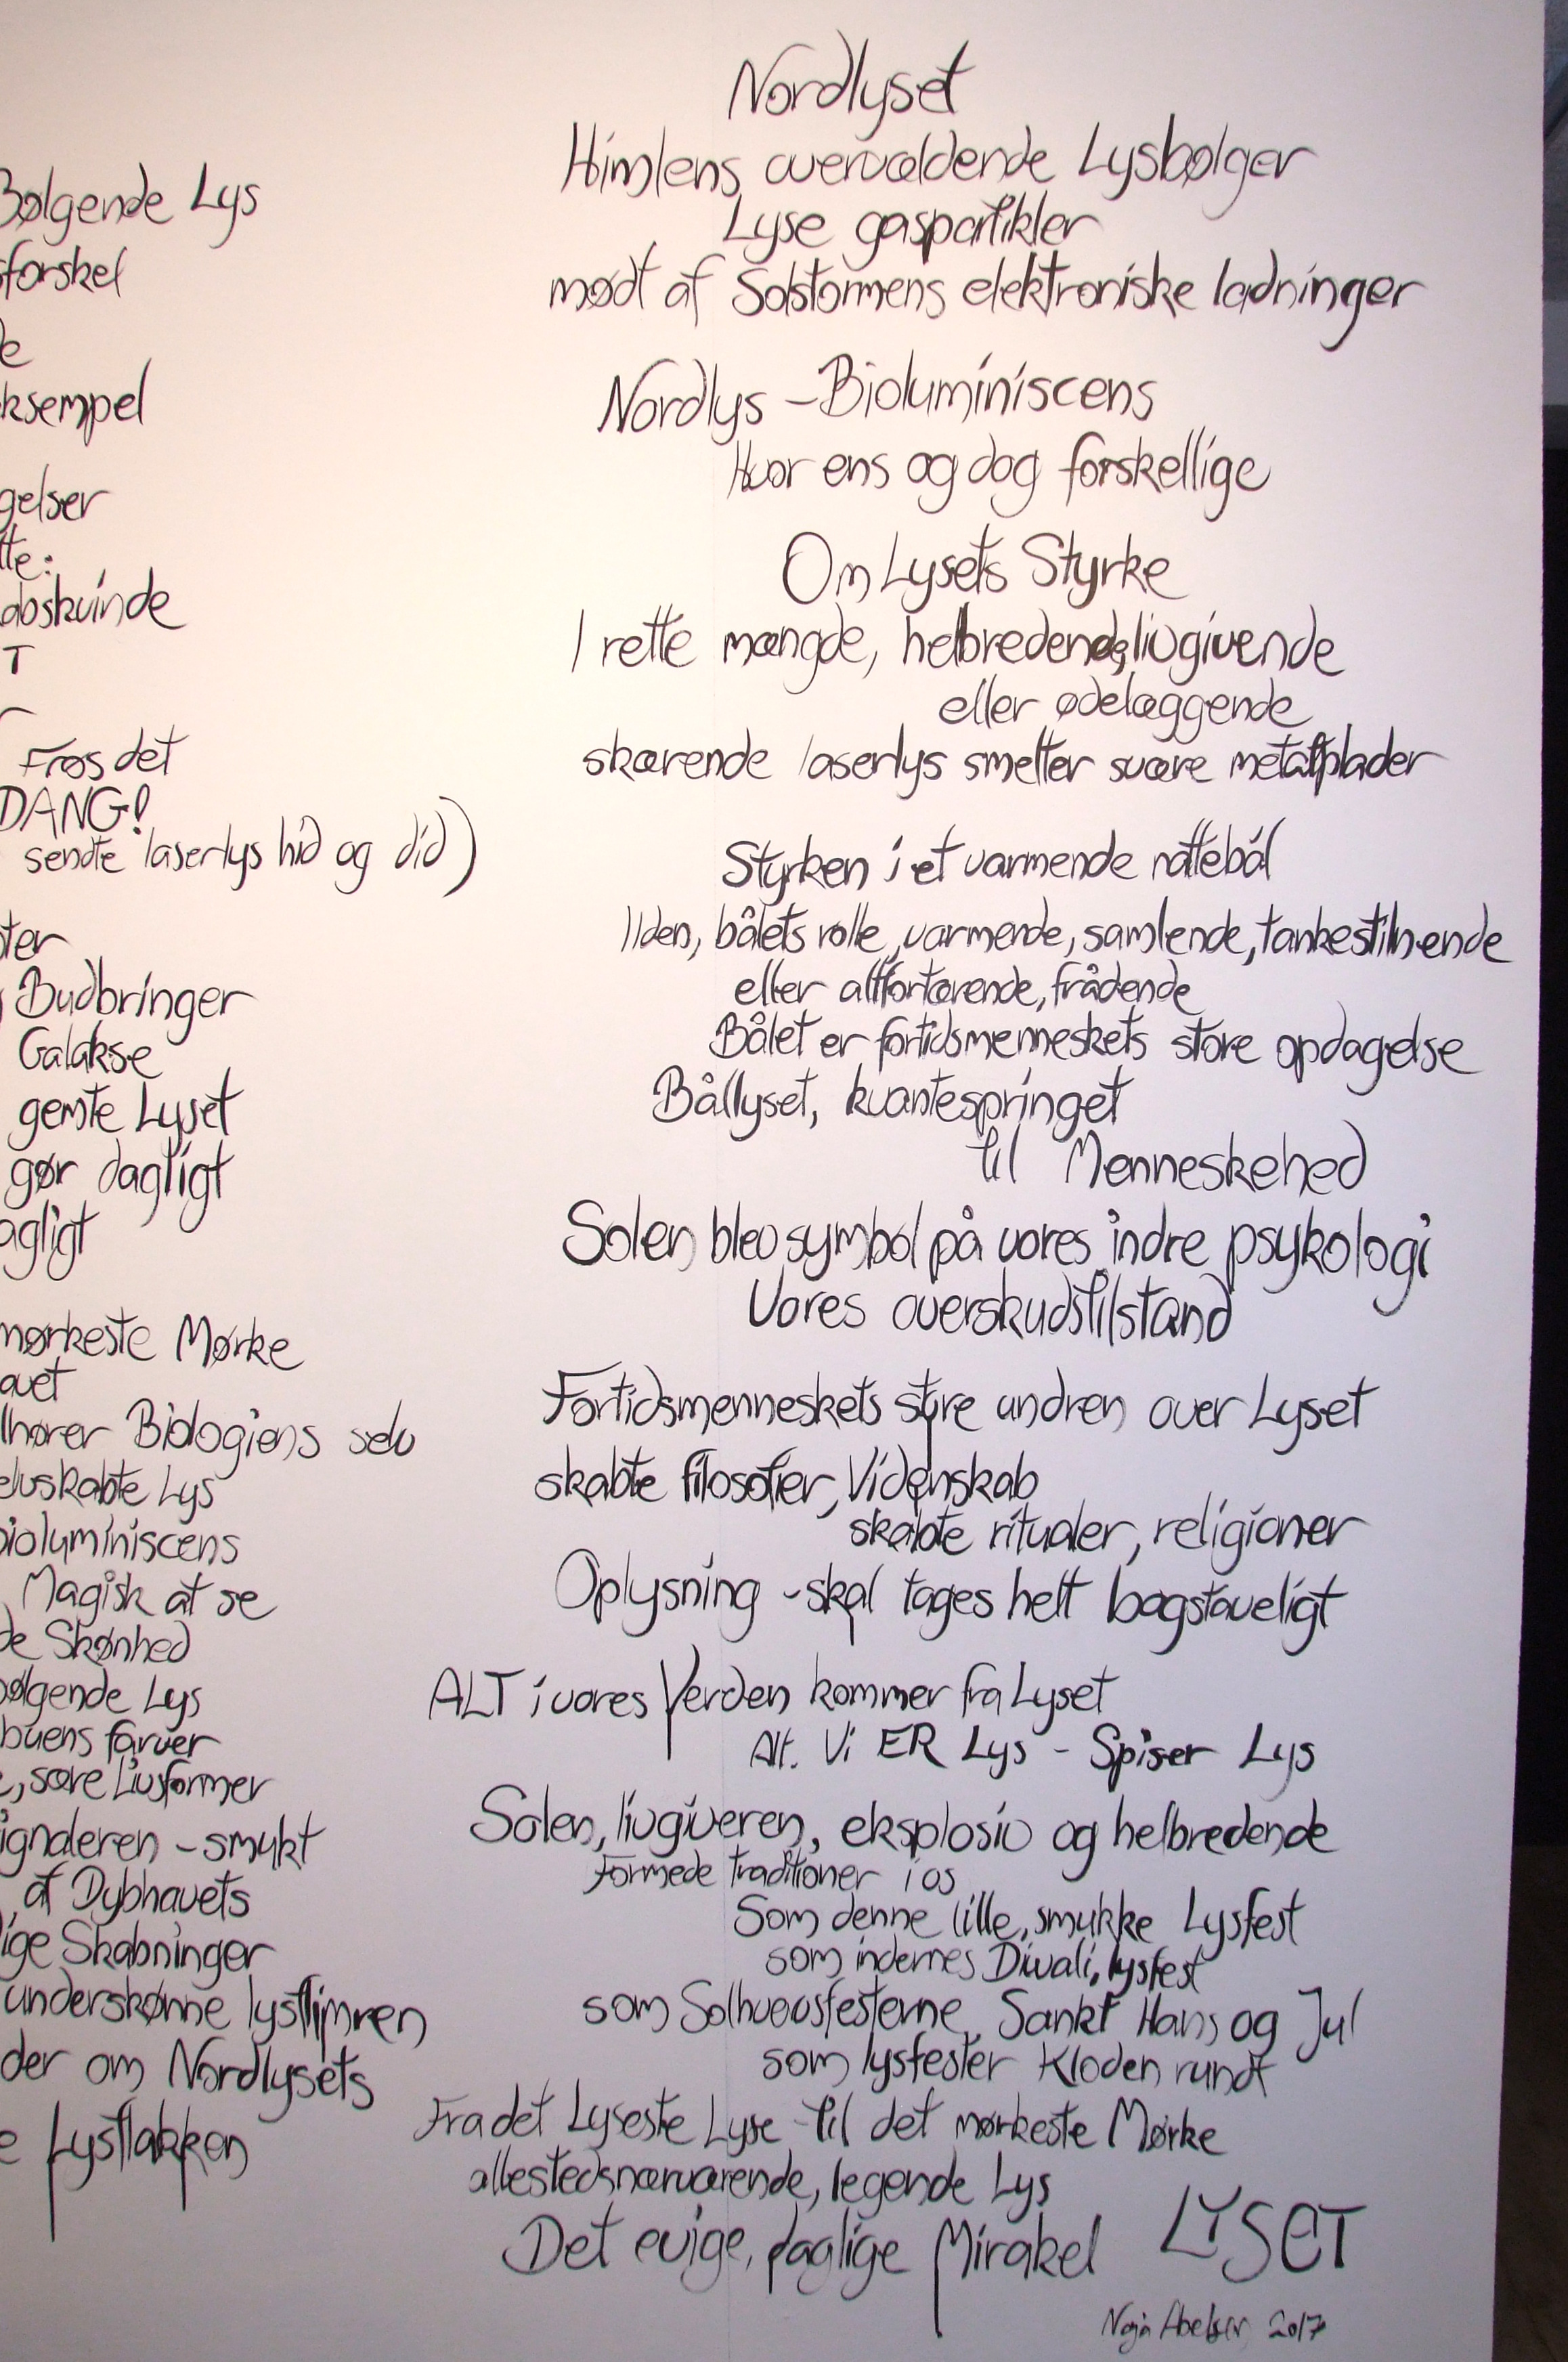 Bølgende Lys
forskel
ksempel
gelser
tte:
abskvinde
T
Frøs det
DANG!
sendte laserlys hid og did)
ter
Budbringer
Galakse
gemte Lyset
gør dagligt
agligt
mørkeste Mørke
avet
lhører Biologiens selv
elvskabte Lys
bioluminiscens
Magisk at se
de Skønhed
bølgende Lys
buens farver
e, sære Livsformer
ignderen - smykt
af Dybhavets
ige Skabninger
underskønne lysflimren
der om Nordlysets
e Lysflakken
Nordlyset
Himlens overvældende Lysbølger
Lyse gaspartikler
mødt af Solstormens elektroniske ladninger
Nordlys - Bioluminiscens
Hvor ens og dog forskellige
Om Lysets Styrke
I rette mængde, helbredende, livgivende
eller ødelæggende
skærende laserlys smelter svære metalplader
Styrken i et varmende nattebål
Ilden, bålets rolle, varmende, samlende, tankestilnende
eller altfortærende, frådende
Bålet er fortidsmenneskets store opdagelse
Bållyset, kvantespringet
til Menneskehed
Solen blev symbol på vores indre psykologi
Vores overskudstilstand
Fortidsmenneskets styre undren over Lyset
skabte filosofier, Videnskab
skabte ritualer, religioner
Oplysning - skal tages helt bogstaveligt
ALT i vores Verden kommer fra Lyset
Alt. Vi ER Lys - Spiser Lys
Solen, livgiveren, eksplosiv og helbredende
Formede traditioner i os
Som denne lille, smukke Lysfest
som indernes Diwali, lysfest
som Solhvervsfesterne, Sankt Hans og Jul
som lysfester Kloden rundt
Fra det Lyseste Lyse til det mørkeste Mørke
allestedsnærværende, legende Lys
Det evige, daglige Mirakel LYSET
Naja Abelsen 2017